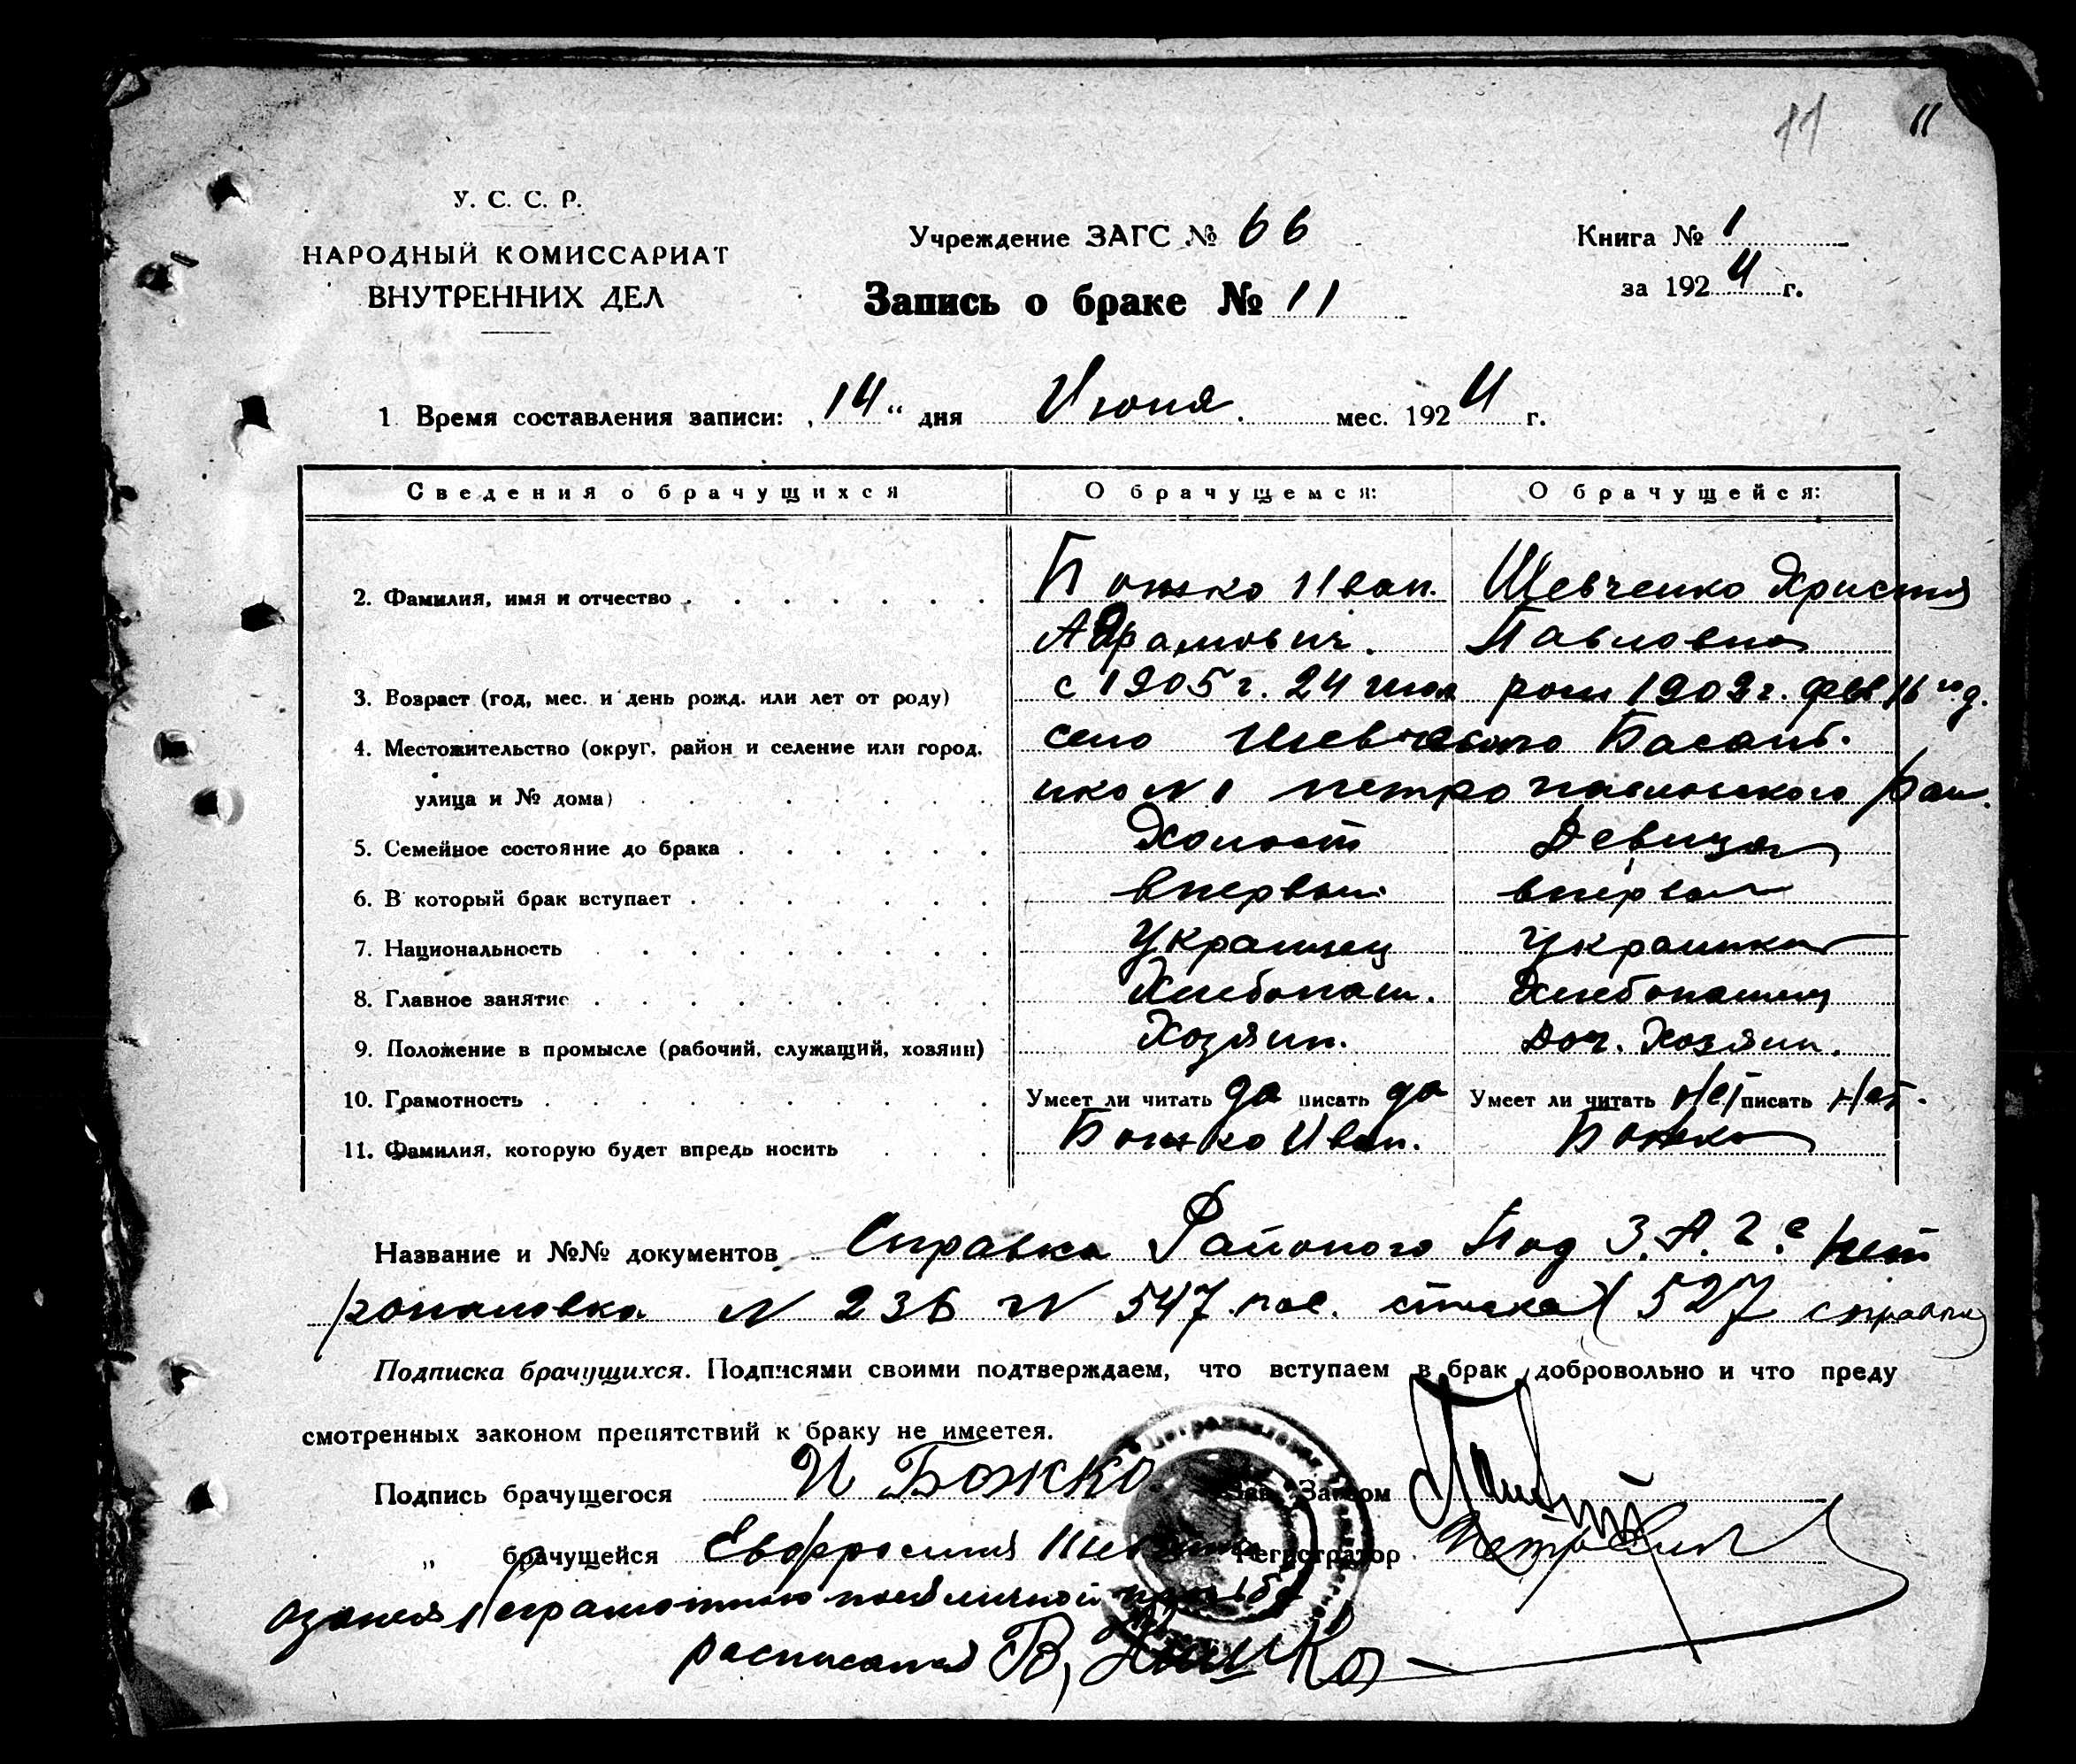 11 11
У. С. С. Р.
НАРОДНЫЙ КОМИССАРИАТ
ВНУТРЕННИХ ДЕЛ
Учреждение ЗАГС № 66
Запись о браке № 11
Книга № 1
за 1924 г.
1. Время составления записи: „14“ дня Июня мес. 1924 г.
Сведения о брачущихся О брачущемся: О брачущейся:
2. Фамилия, имя и отчество Божко Иван. Шевченко Христия
Абрамович. Павловна
3. Возраст (год, мес. и день рожд. или лет от роду) с 1905 г. 24 июл
4. Местожительство (округ, район и селение или город, село
улица и № дома) N 1 петропавловского рай.
5. Семейное состояние до брака Холост Девица
6. В который брак вступает впервый
7. Национальность Украинец украинка
8. Главное занятие Хлебопаш. Хлебопашец
9. Положение в промысле (рабочий, служащий, хозяин) Хозяин. Доч. Хозяин.
10. Грамотность Умеет ли читать да писать да Умеет ли читать Нет писать Нет.
11. Фамилия, которую будет впредь носить Божко Иван. Божко
Название и №№ документов Справка Районого Под З.А.Г.С Пет
ропаловка N 236 N 547 527 справки
Подписка брачущихся. Подписями своими подтверждаем, что вступаем в брак добровольно и что преду
смотренных законом препятствий к браку не имеется.
Подпись брачущегося И Божко Зав. Загсом
„ брачущейся Евфросиния Регистратор
неграмотною личной
расписался В.